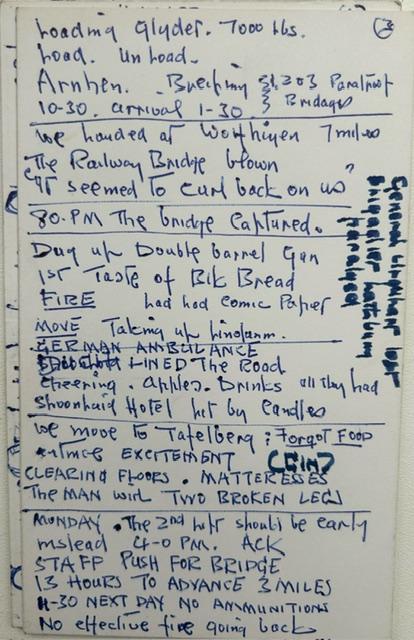 ③
Loading Glyder. 7000 lbs.
Load. Unload.
Arnhem. Briefing 1.2 & 3 Paratroop
10-30. arrival 1-30. Bridages
We landed at Wolfhiyen 7 miles
The Railway Bridge blown
"It seemed to curl back on us"
80.PM The bridge Captured.
Dug up Double barrel Gun
1st Taste of Blk Bread
FIRE had had comic Paper
MOVE Taking up Linolanm.
GERMAN AMBULANCE
LINED The Road
Cheering. Apples. Drinks all they had
Shoonhaid Hotel lit by Candles
We move to Tafelberg; Forgot FOOD
EXCITEMENT
CLEARING FLOORS. MATTERESSES
The MAN with TWO BROKEN LEGS
MONDAY. The 2nd lift should be early
instead 4-0 PM. ACK
STAFF PUSH FOR BRIDGE
13 HOURS TO ADVANCE 3 MILES
11-30 NEXT DAY NO AMMUNITIONS
No effective fire going back
General Urquhart lost
Brigadier